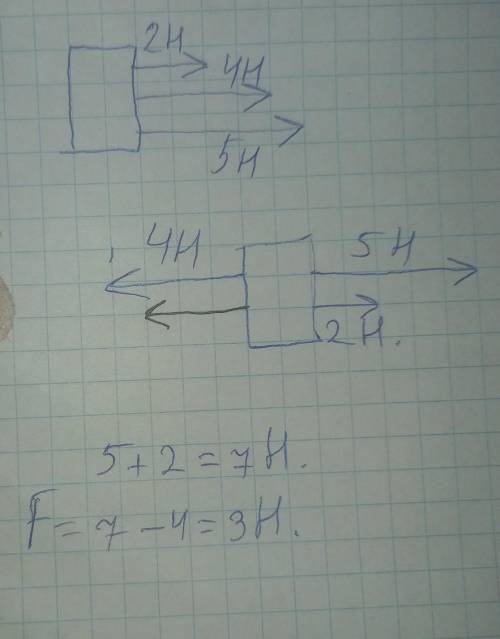 2Н
4Н
5Н
4Н 5Н
2Н.
5+2=7Н.
F=7-4=3Н.